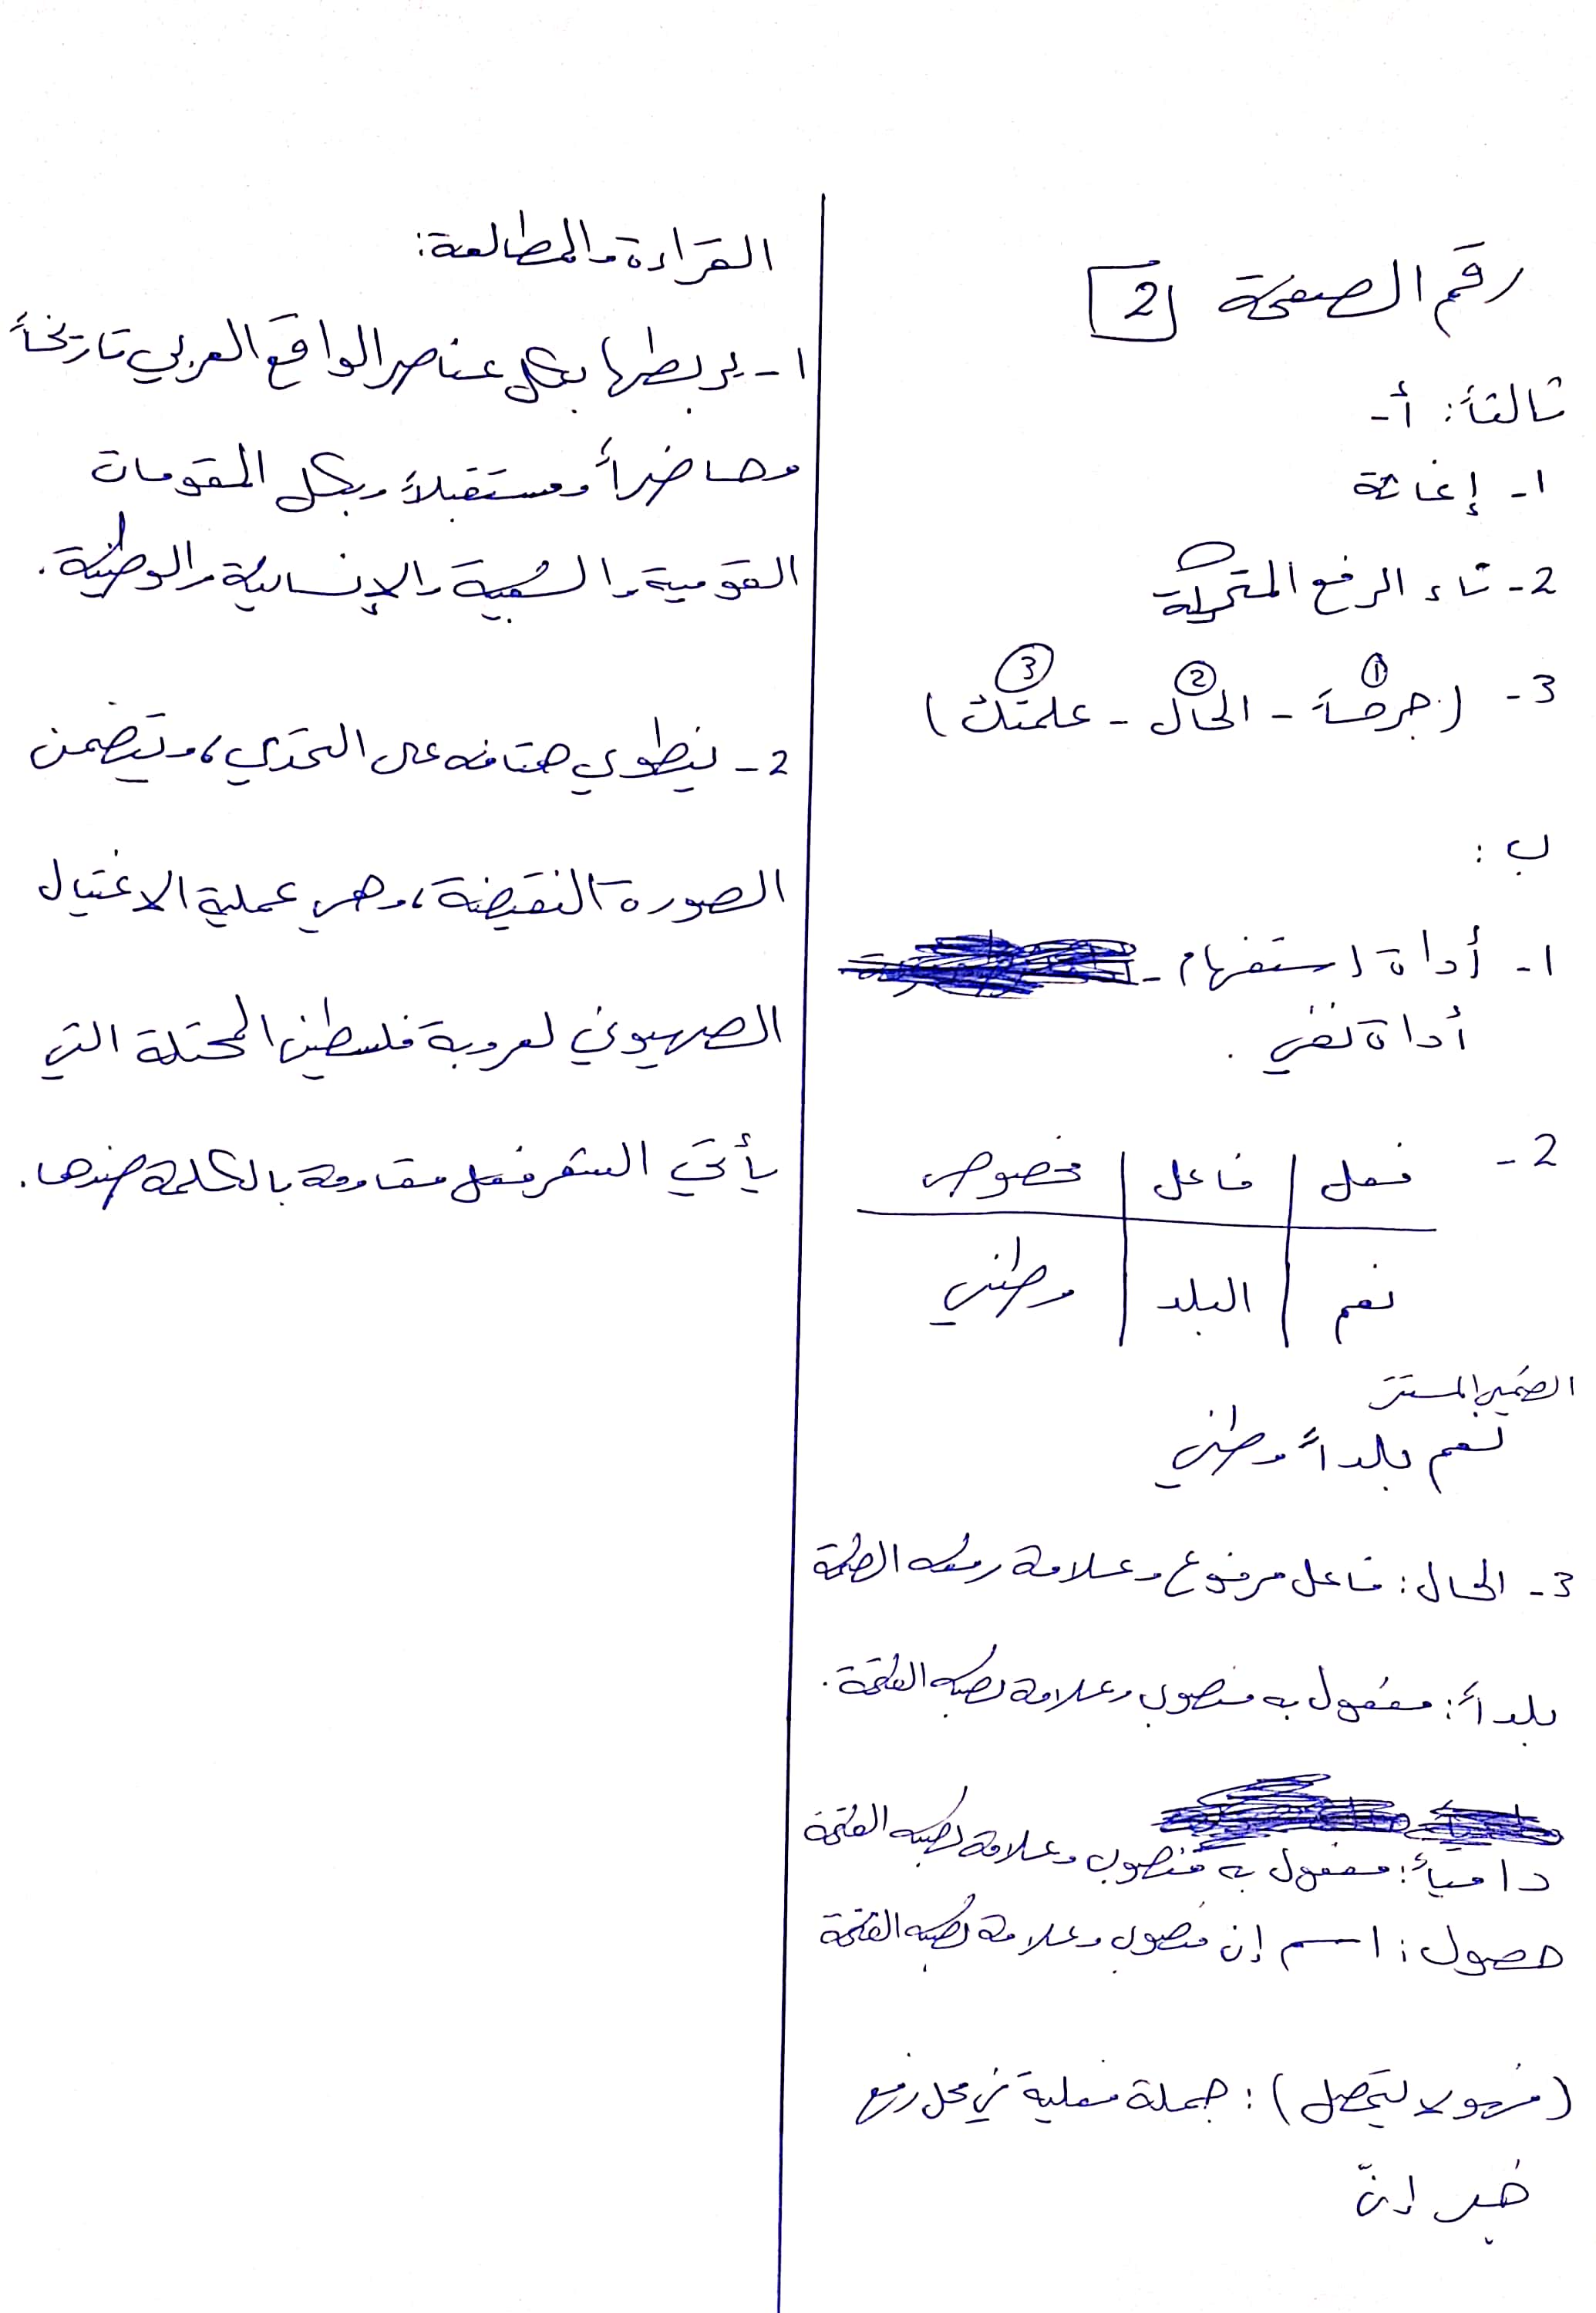 رقم الصفحة 2
ثالثاً: أ-
1- إغاثة
2- تاء الرفع المتحركة
3- (جرحاً - الحال - علمتك)
1 2 3
ب:
1- أداة استفهام -
أداة نفي.
2-
فعل | فاعل | مخصوص
نعم | البلد | وطني
الضمير المستتر
نعم بلداً وطني
3- الحال: فاعل مرفوع وعلامة رفعه الضمة
بلداً: مفعول به منصوب وعلامة نصبه الفتحة.
دامياً: مفعول به منصوب وعلامة نصبه الفتحة
حصول: اسم إن منصوب وعلامة نصبه الفتحة
(فهو لا يتحصل): جملة فعلية في محل رفع
خبر إنّ
القراءة والمطالعة:
1- يربطها بكل عناصر الواقع العربي تاريخاً
وحاضراً ومستقبلاً وبكل المقومات
القومية والشعبية والإنسانية والوطنية.
2- ينطوي هتافه على التحدي، ويتضمن
الصورة النقيضة، وهي عملية الاغتيال
الصهيوني لعروبة فلسطين المحتلة التي
يأتي الشعر فعل مقاومة بالكلمة ضدها.